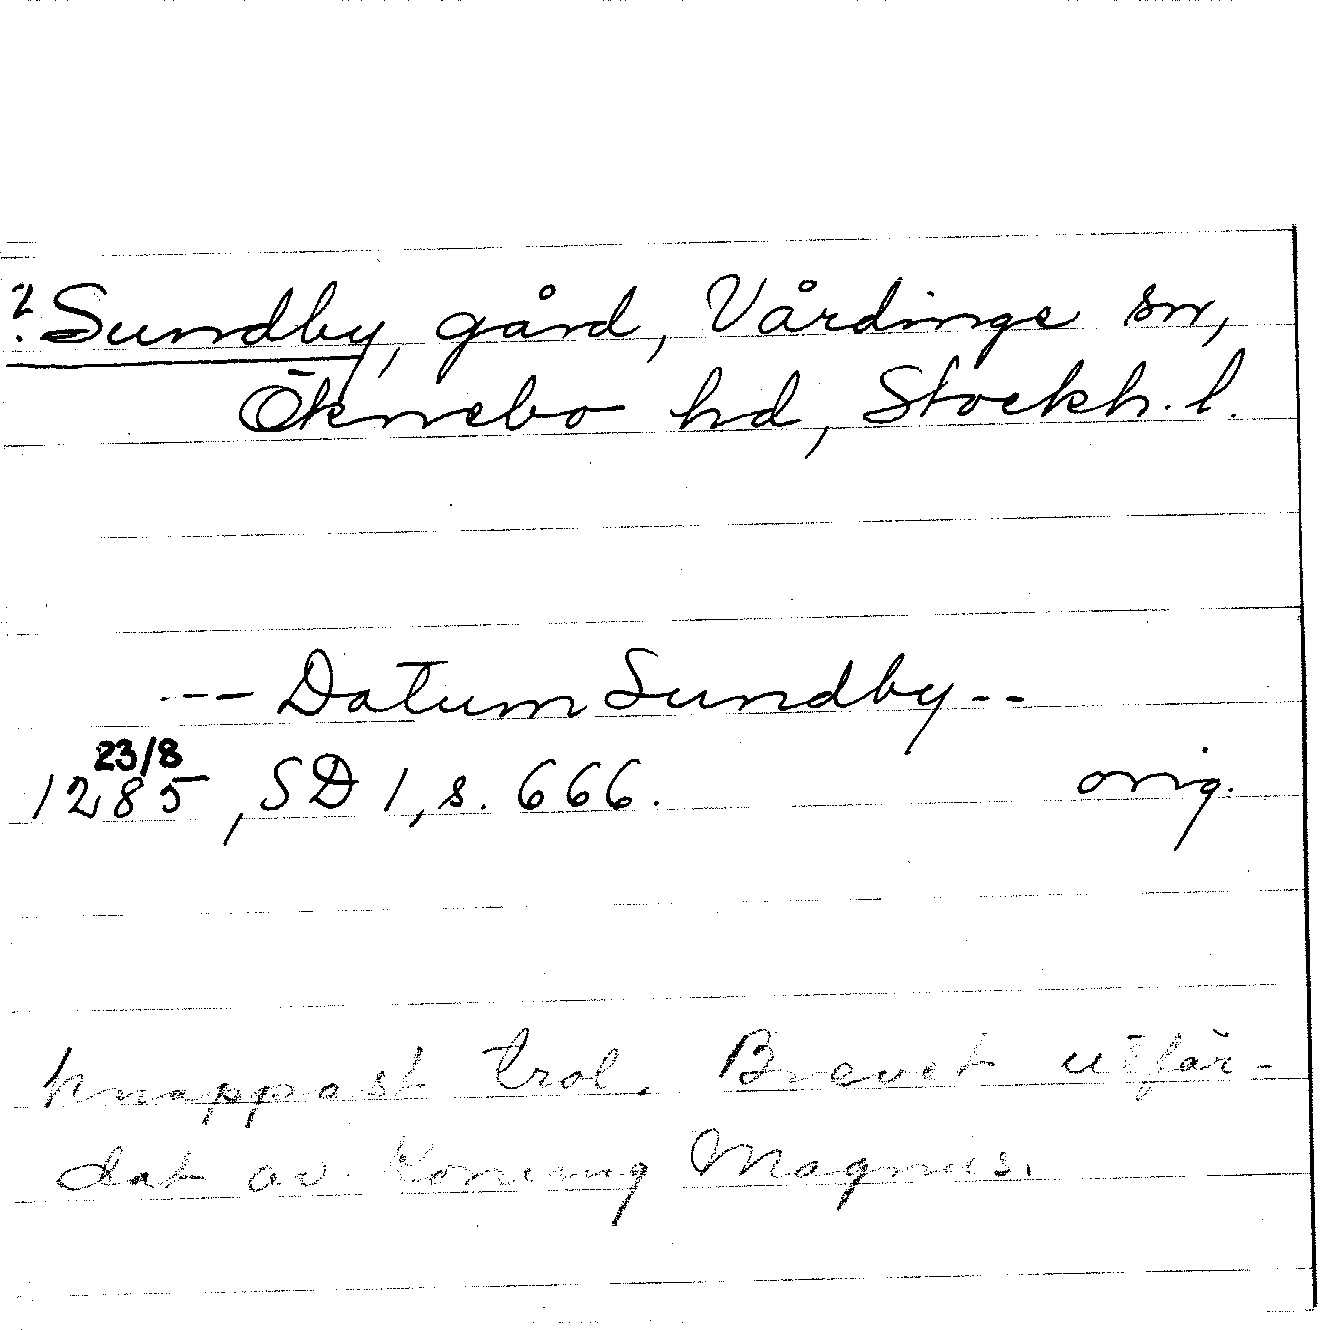 ? Sundby, gård, Vårdinge sn,
Öknebo hd, Stockh. l.
--- Datum Sundby --
23/8
1285, SD 1, s. 666. orig.
knappast trol. Brevet utfär-
dat av Konung Magnus.